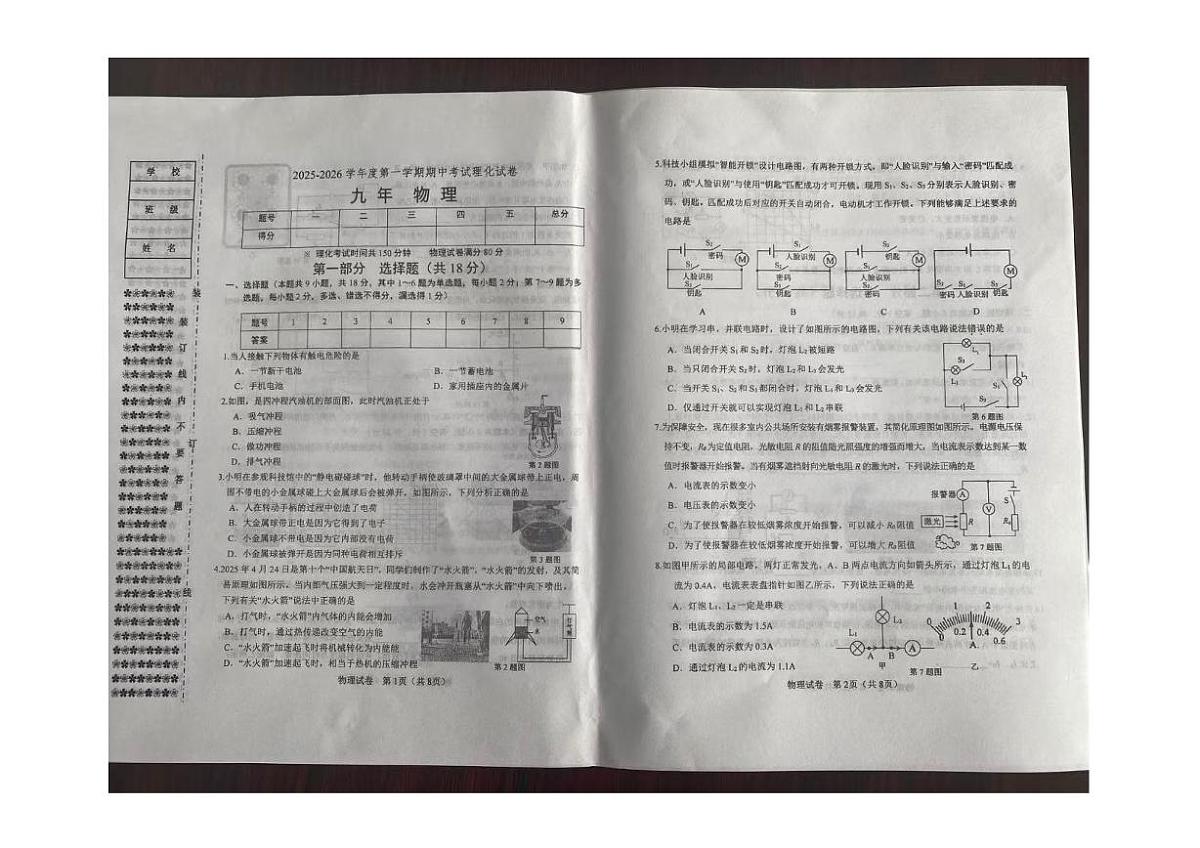 学 校
班 级
姓 名
装
装
订
线
内
不
订
要
答
题
线
2025-2026 学年度第一学期期中考试理化试卷
九年 物理
题号 一 二 三 四 五 总分
得分
※ 理化考试时间共 150 分钟 物理试卷满分 80 分
第一部分 选择题（共 18 分）
一、选择题（本题共 9 小题，共 18 分，其中 1～6 题为单选题，每小题 2 分；第 7～9 题为多
选题，每小题 2 分，多选、错选不得分，漏选得 1 分）
题号 1 2 3 4 5 6 7 8 9
答案
1.当人接触下列物体有触电危险的是
A．一节新干电池 B．一节蓄电池
C．手机电池 D．家用插座内的金属片
2.如图，是四冲程汽油机的剖面图，此时汽油机正处于
A．吸气冲程
B．压缩冲程
C．做功冲程
D．排气冲程
第 2 题图
3.小明在参观科技馆中的“静电碰碰球”时，他转动手柄使玻璃罩中间的大金属球带上正电，周
围不带电的小金属球碰上大金属球后会被弹开。如图所示，下列分析正确的是
A．人在转动手柄的过程中创造了电荷
B．大金属球带正电是因为它得到了电子
C．小金属球不带电是因为它内部没有电荷
D．小金属球被弹开是因为同种电荷相互排斥
第 3 题图
4.2025 年 4 月 24 日是第十个“中国航天日”，同学们制作了“水火箭”，“水火箭”的发射，及其简
易原理如图所示。当内部气压强大到一定程度时，水会冲开瓶塞从“水火箭”中向下喷出，
下列有关“水火箭”说法中正确的是
A．打气时，“水火箭”内气体的内能会增加
B．打气时，通过热传递改变空气的内能
C．“水火箭”加速起飞时将机械转化为内能能
D．“水火箭”加速起飞时，相当于热机的压缩冲程
空气
水
打气筒
第 2 题图
物理试卷 第 1 页（共 8 页）
5.科技小组模拟“智能开锁”设计电路图，有两种开锁方式，即“人脸识别”与输入“密码”匹配成
功，或“人脸识别”与使用“钥匙”匹配成功才可开锁。现用 S₁、S₂、S₃ 分别表示人脸识别、密
码、钥匙。匹配成功后对应的开关自动闭合，电动机才工作开锁。下列能够满足上述要求的
电路是
S₂ 密码 M S₁ 人脸识别 S₃ 钥匙
S₁ 人脸识别 M S₂ 密码 S₃ 钥匙
S₃ 钥匙 M S₁ 人脸识别 S₂ 密码
M 密码 人脸识别 钥匙
A B C D
6.小明在学习串，并联电路时，设计了如图所示的电路图，下列有关该电路说法错误的是
A．当闭合开关 S₁ 和 S₂ 时，灯泡 L₂ 被短路
B．当只闭合开关 S₂ 时，灯泡 L₂ 和 L₃ 会发光
C．当开关 S₁、S₂ 和 S₃ 都闭合时，灯泡 L₁ 和 L₃ 会发光
D．仅通过开关就可以实现灯泡 L₁ 和 L₂ 串联
第 6 题图
7.为保障安全，现在很多室内公共场所安装有烟雾报警装置，其简化原理图如图所示。电源电压保
持不变，R₀ 为定值电阻，光敏电阻 R 的阻值随光照强度的增强而增大，当电流表示数达到某一数
值时报警器开始报警。当有烟雾遮挡射向光敏电阻 R 的激光时，下列说法正确的是
A．电流表的示数变小
B．电压表的示数变小
C．为了使报警器在较低烟雾浓度开始报警，可以减小 R₀ 阻值
D．为了使报警器在较低烟雾浓度开始报警，可以增大 R₀ 阻值
报警器 A V S
激光 R R₀
第 7 题图
8.如图甲所示的局部电路，两灯正常发光，A、B 两点电流方向如箭头所示，通过灯泡 L₁ 的电
流为 0.4A，电流表表盘指针如图乙所示，下列说法正确的是
A．灯泡 L₁、L₂ 一定是串联
B．电流表的示数为 1.5A
C．电流表的示数为 0.3A
D．通过灯泡 L₂ 的电流为 1.1A
L₂
L₁ A B A
甲
0 1 2 3
0.2 0.4 0.6
A
乙
第 7 题图
物理试卷 第 2 页（共 8 页）